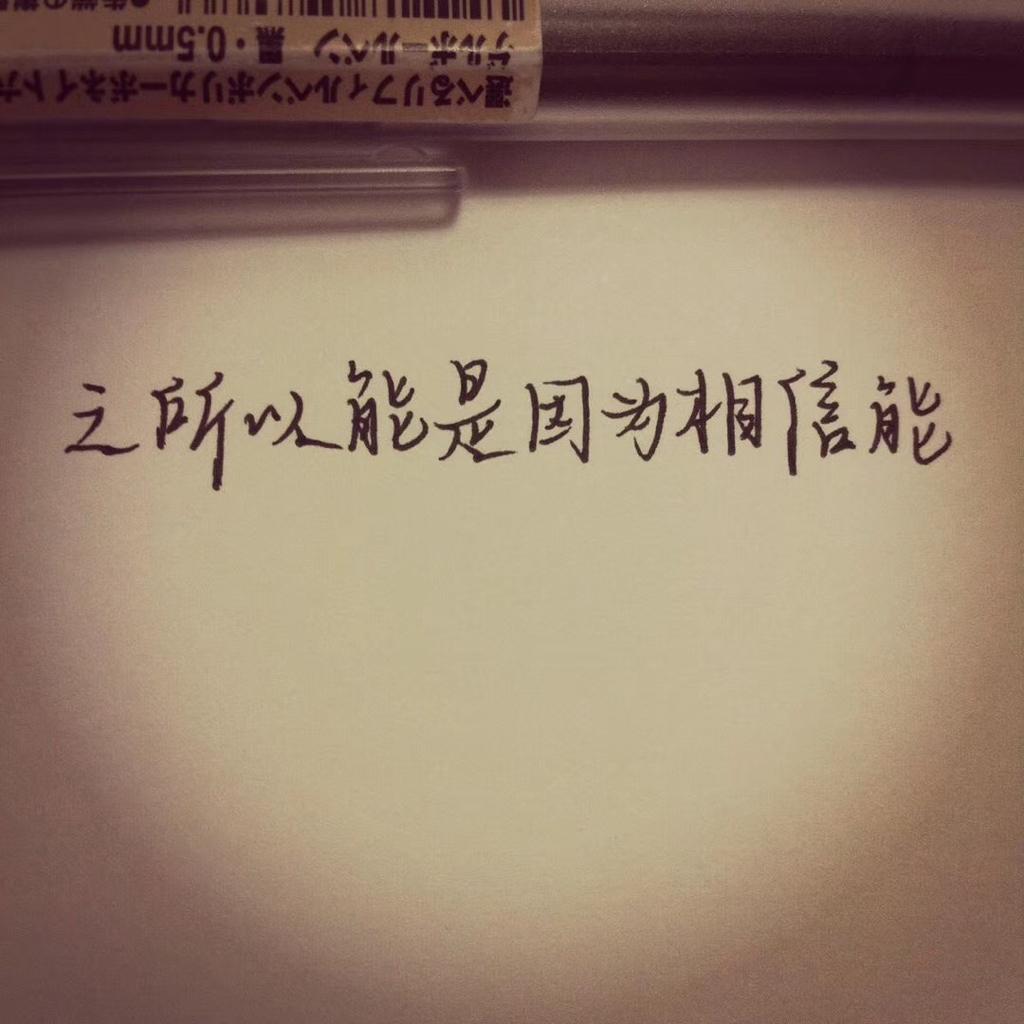 選べるリフィルペンポリカーボネイト
ゲルボールペン 黒・0.5mm
之所以能是因为相信能